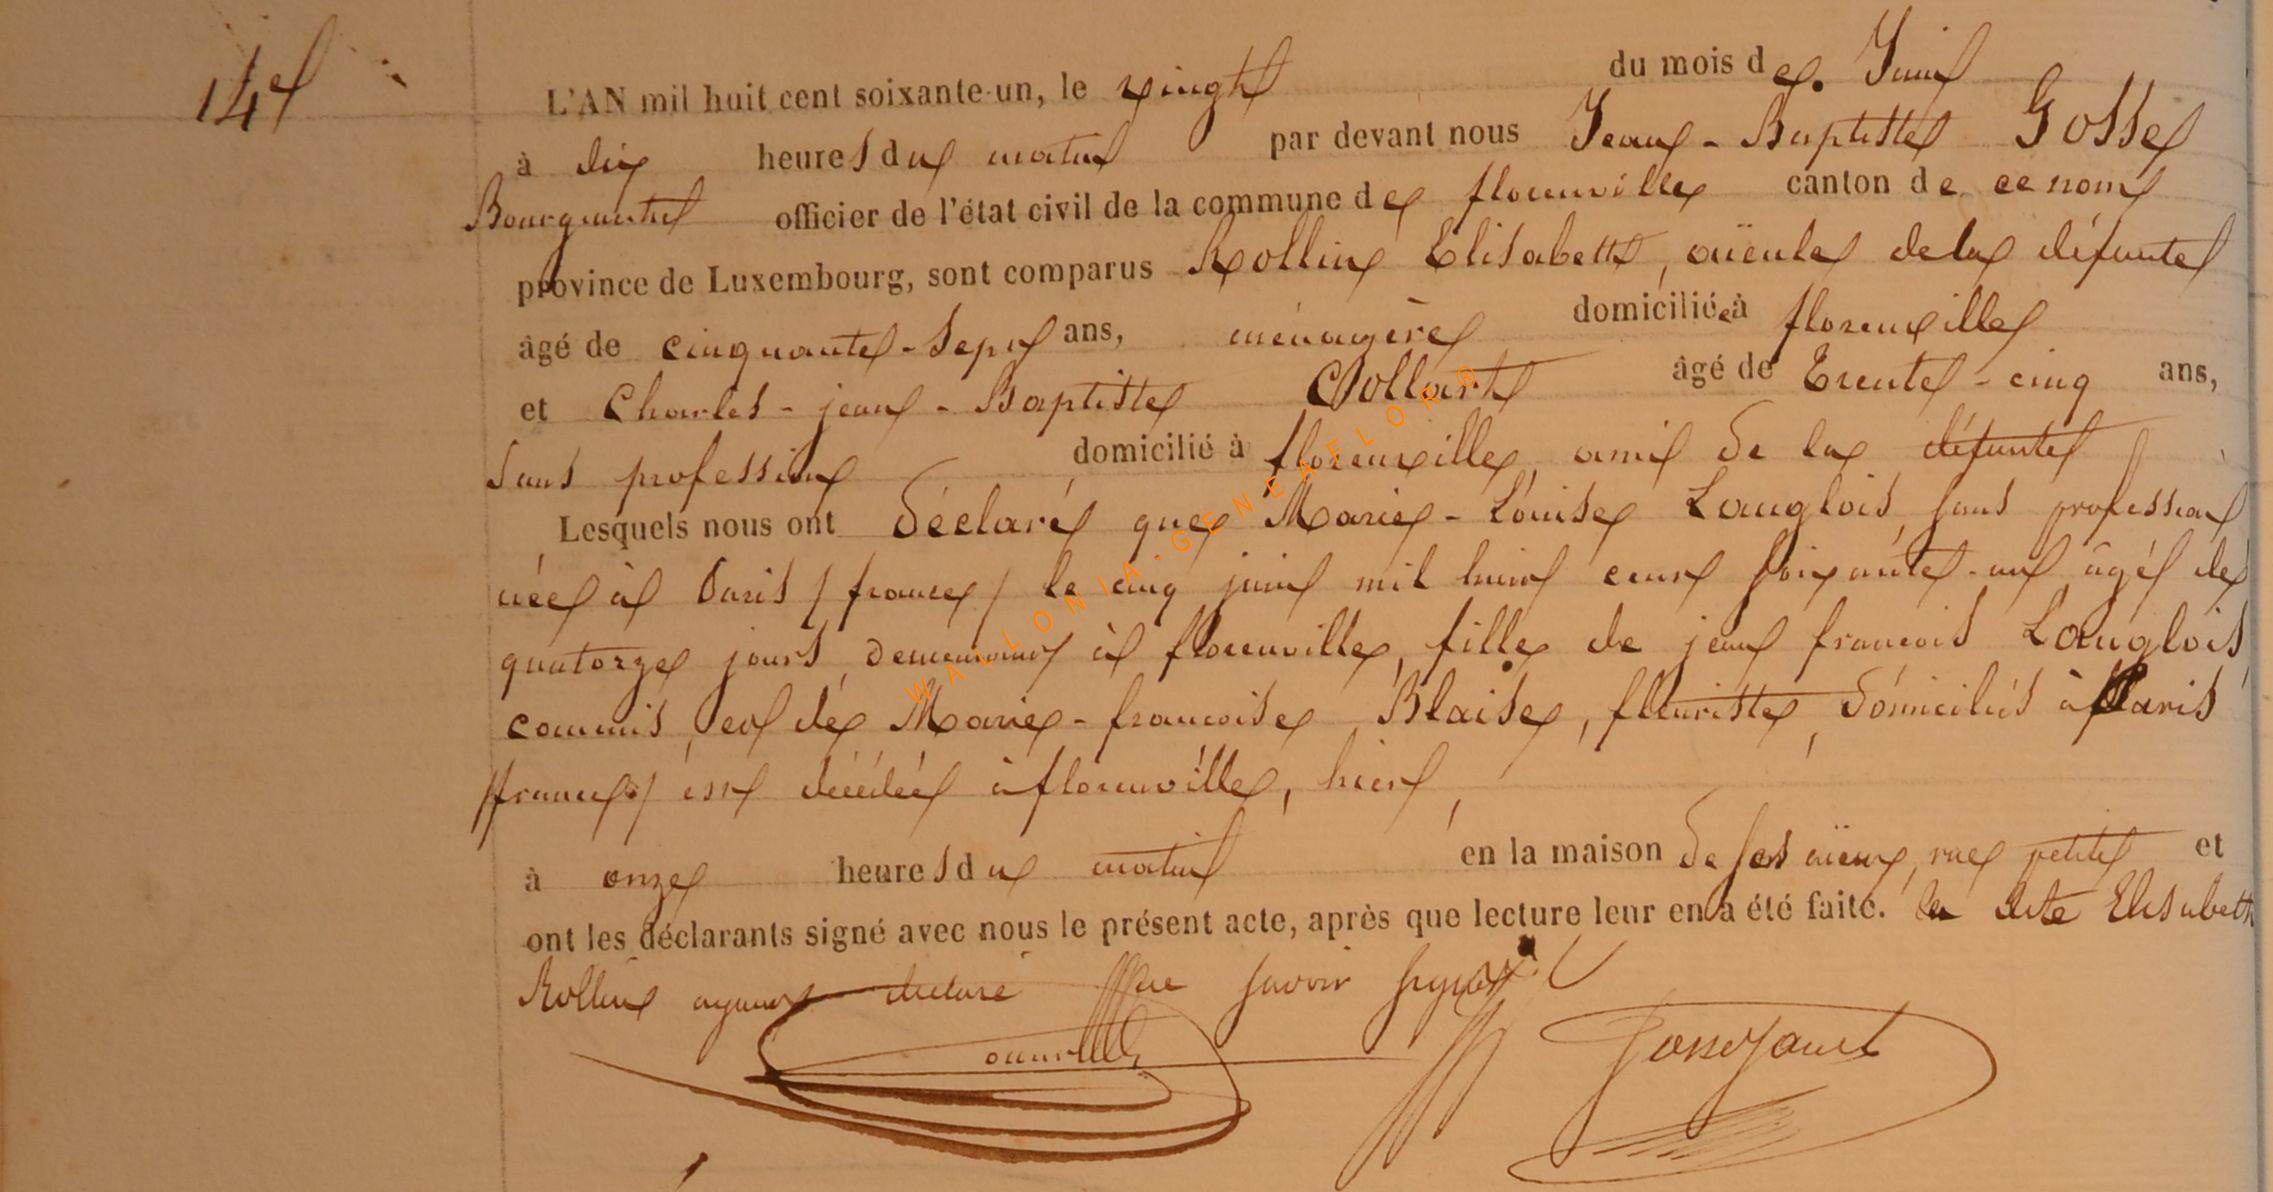 14e
L'AN mil huit cent soixante-un, le vingt du mois de Juin
à dix heures du matin par devant nous Jean-Baptiste Gosse
Bourgmestre officier de l'état civil de la commune de florenville canton de ce nom
province de Luxembourg, sont comparus Rollin Elisabeth, aïeule de la défunte
âgé de cinquante-sept ans, ménagère domiciliée à florenville
et Charles-jean-Baptiste Collart âgé de Trente-cinq ans,
sans profession domicilié à florenville, ami de la défunte
Lesquels nous ont déclaré que Marie-Louise Langlois, sans profession
née à Paris /france/ le cinq juin mil huit cent soixante-un, âgée de
quatorze jours, demeurant à florenville, fille de jean françois Langlois,
commis, et de Marie-françoise Blaise, fleuriste, domiciliés à Paris
/france/ est décédée à florenville, hier,
à onze heures du matin en la maison de ses aïeux, rue petite et
ont les déclarants signé avec nous le présent acte, après que lecture leur en a été faite. la dite Elisabeth
Rollin ayant déclaré ne savoir signer
WALLONIA-GENEAFLOR©